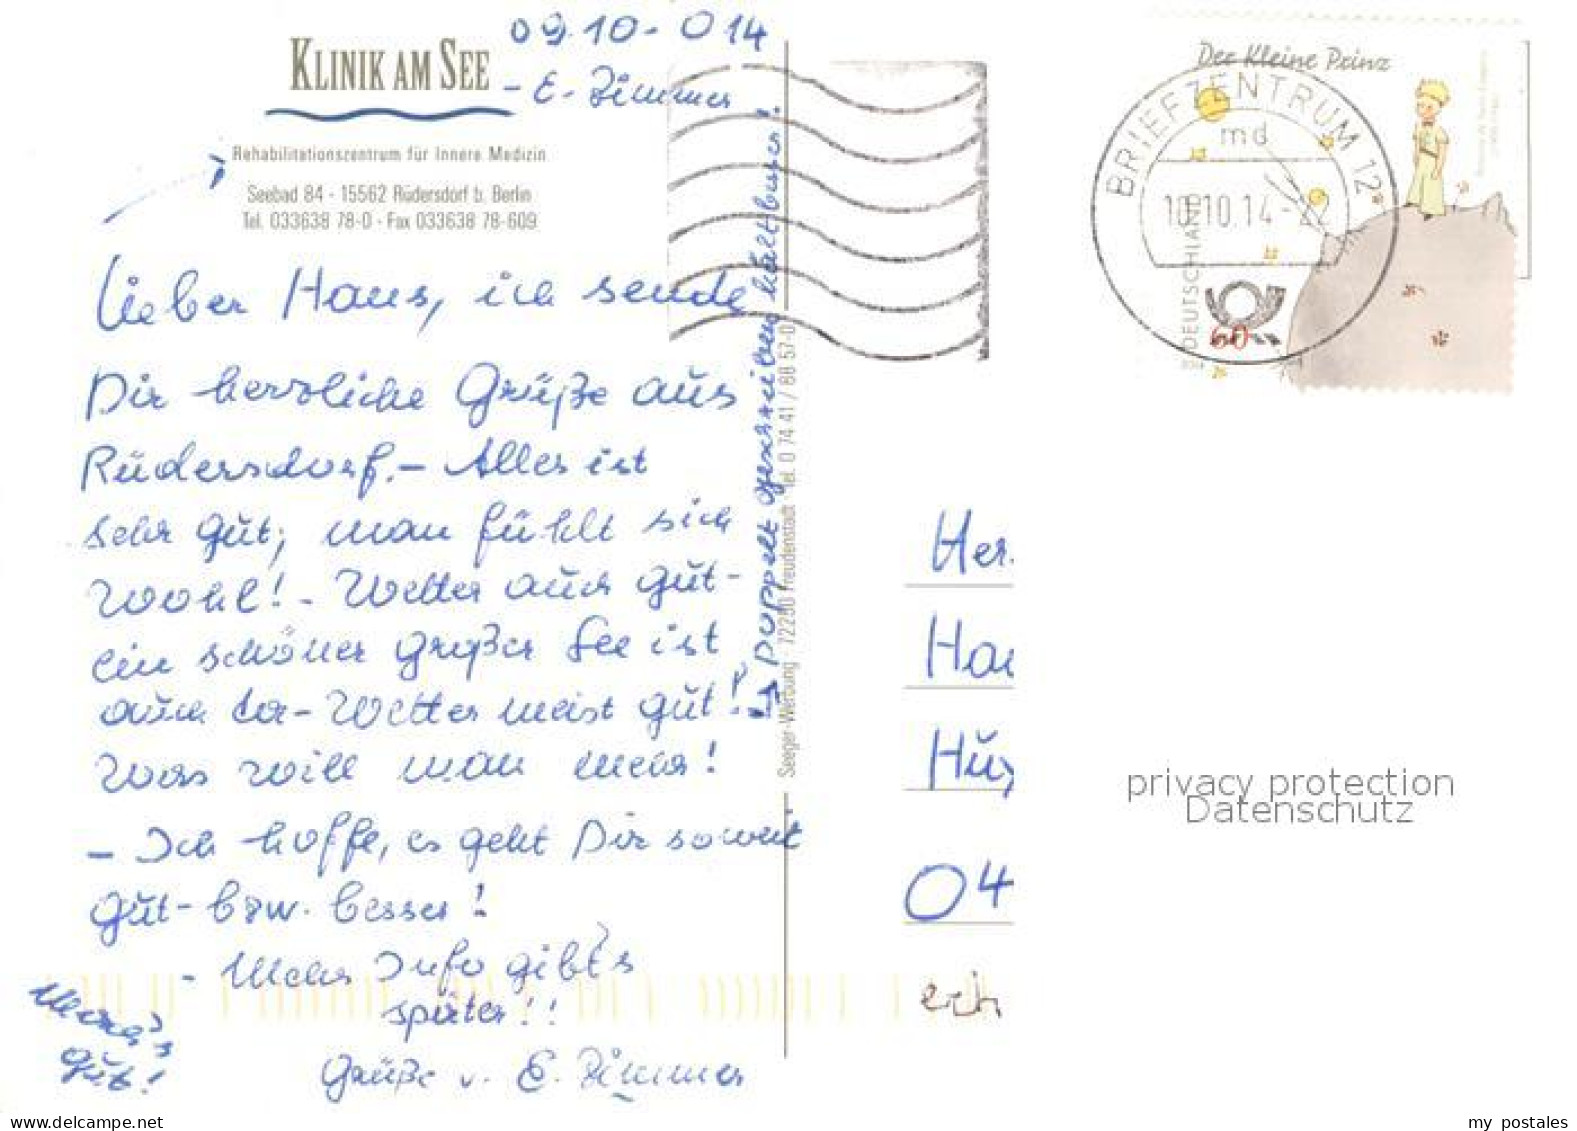 KLINIK AM SEE
09.10-014
- E. Zimmer
Rehabilitationszentrum für Innere Medizin
Seebad 84 - 15562 Rüdersdorf b. Berlin
Tel. 033638 78-0 - Fax 033638 78-609
Lieber Hans, ich sende
Dir herzliche Grüße aus
Rüdersdorf. - Alles ist
sehr gut, man fühlt sich
wohl! - Wetter auch gut -
ein schöner großer See ist
auch da - Wetter meist gut!
Was will man mehr!
- Ich hoffe, es geht Dir soweit
gut - bzw. besser!
- Mehr Info gibt's
später!!
Mach's
gut!
Grüße v. E. Zimmer
doppelt geschrieben hält besser!
Seeger-Werbung · 72250 Freudenstadt · Tel. 0 74 41 / 88 57-0
Der Kleine Prinz
BRIEFZENTRUM 12
md
10.10.14-22
DEUTSCHLAND
60
Her
Han
04
privacy protection
Datenschutz
my postales